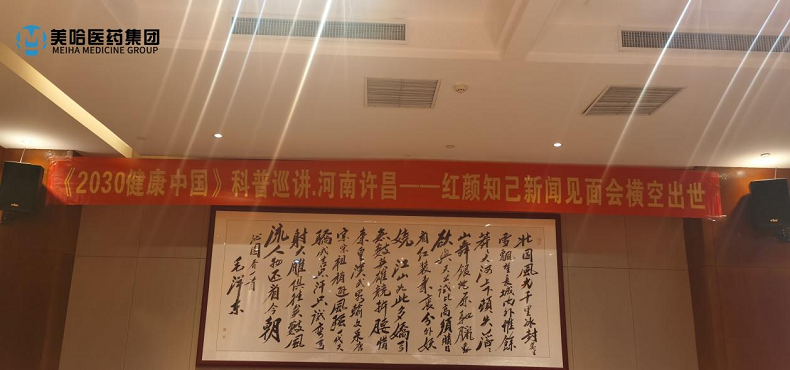 美哈医药集团
MEIHA MEDICINE GROUP
《2030健康中国》科普巡讲.河南许昌——红颜知己新闻见面会横空出世
北国风光千里冰封万里
雪飘望长城内外惟余
莽莽大河上下顿失滔滔
山舞银蛇原驰腊象
欲与天公试比高须晴日
看红装素裹分外妖
娆江山如此多娇引
无数英雄竞折腰惜
秦皇汉武略输文采唐
宋宗祖稍逊风骚一代天
骄成吉思汗只识弯弓
射大雕俱往矣数风
流人物还看今朝
沁园春雪
毛泽东